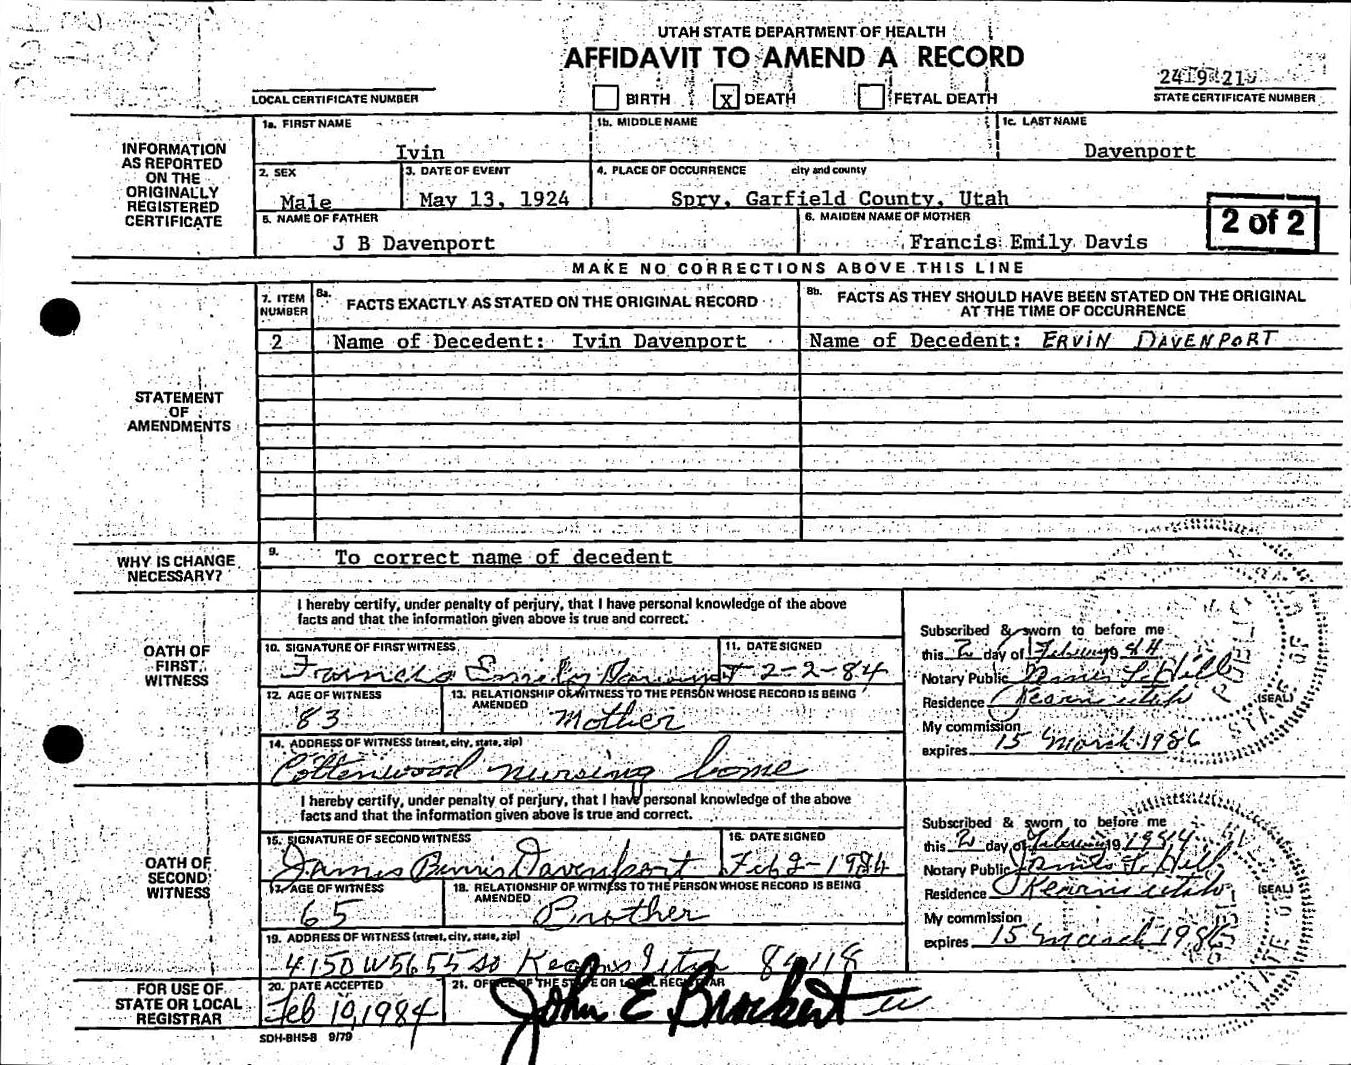 UTAH STATE DEPARTMENT OF HEALTH
AFFIDAVIT TO AMEND A RECORD
LOCAL CERTIFICATE NUMBER
BIRTH X DEATH FETAL DEATH
STATE CERTIFICATE NUMBER
INFORMATION AS REPORTED ON THE ORIGINALLY REGISTERED CERTIFICATE
1a. FIRST NAME 1b. MIDDLE NAME 1c. LAST NAME
Ivin Davenport
2. SEX 3. DATE OF EVENT 4. PLACE OF OCCURRENCE city and county
Male May 13, 1924 Spry, Garfield County, Utah
5. NAME OF FATHER 6. MAIDEN NAME OF MOTHER
J B Davenport Francis Emily Davis
2 of 2
MAKE NO CORRECTIONS ABOVE THIS LINE
STATEMENT OF AMENDMENTS
7. ITEM NUMBER 8a. FACTS EXACTLY AS STATED ON THE ORIGINAL RECORD 8b. FACTS AS THEY SHOULD HAVE BEEN STATED ON THE ORIGINAL AT THE TIME OF OCCURRENCE
2 Name of Decedent: Ivin Davenport Name of Decedent: ERVIN DAVENPORT
WHY IS CHANGE NECESSARY?
9. To correct name of decedent
OATH OF FIRST WITNESS
I hereby certify, under penalty of perjury, that I have personal knowledge of the above
facts and that the information given above is true and correct.
10. SIGNATURE OF FIRST WITNESS 11. DATE SIGNED
2-2-84
12. AGE OF WITNESS 13. RELATIONSHIP OF WITNESS TO THE PERSON WHOSE RECORD IS BEING AMENDED
83 Mother
14. ADDRESS OF WITNESS (street, city, state, zip)
Cottenwood nursing home
Subscribed & sworn to before me
this 2 day of February 1984
Notary Public
Residence Kearns utah
My commission
expires 15 March 1986
(SEAL)
OATH OF SECOND WITNESS
I hereby certify, under penalty of perjury, that I have personal knowledge of the above
facts and that the information given above is true and correct.
15. SIGNATURE OF SECOND WITNESS 16. DATE SIGNED
James Davenport Feb 2-1984
17. AGE OF WITNESS 18. RELATIONSHIP OF WITNESS TO THE PERSON WHOSE RECORD IS BEING AMENDED
65 Brother
19. ADDRESS OF WITNESS (street, city, state, zip)
4150 W 5655 So Kearns Utah 84118
Subscribed & sworn to before me
this 2 day of February 1984
Notary Public
Residence Kearns utah
My commission
expires 15 March 1986
(SEAL)
FOR USE OF STATE OR LOCAL REGISTRAR
20. DATE ACCEPTED 21. OFFICE OF THE STATE OR LOCAL REGISTRAR
Feb 10, 1984 John E Brockert
SDH-BHS-B 9/79